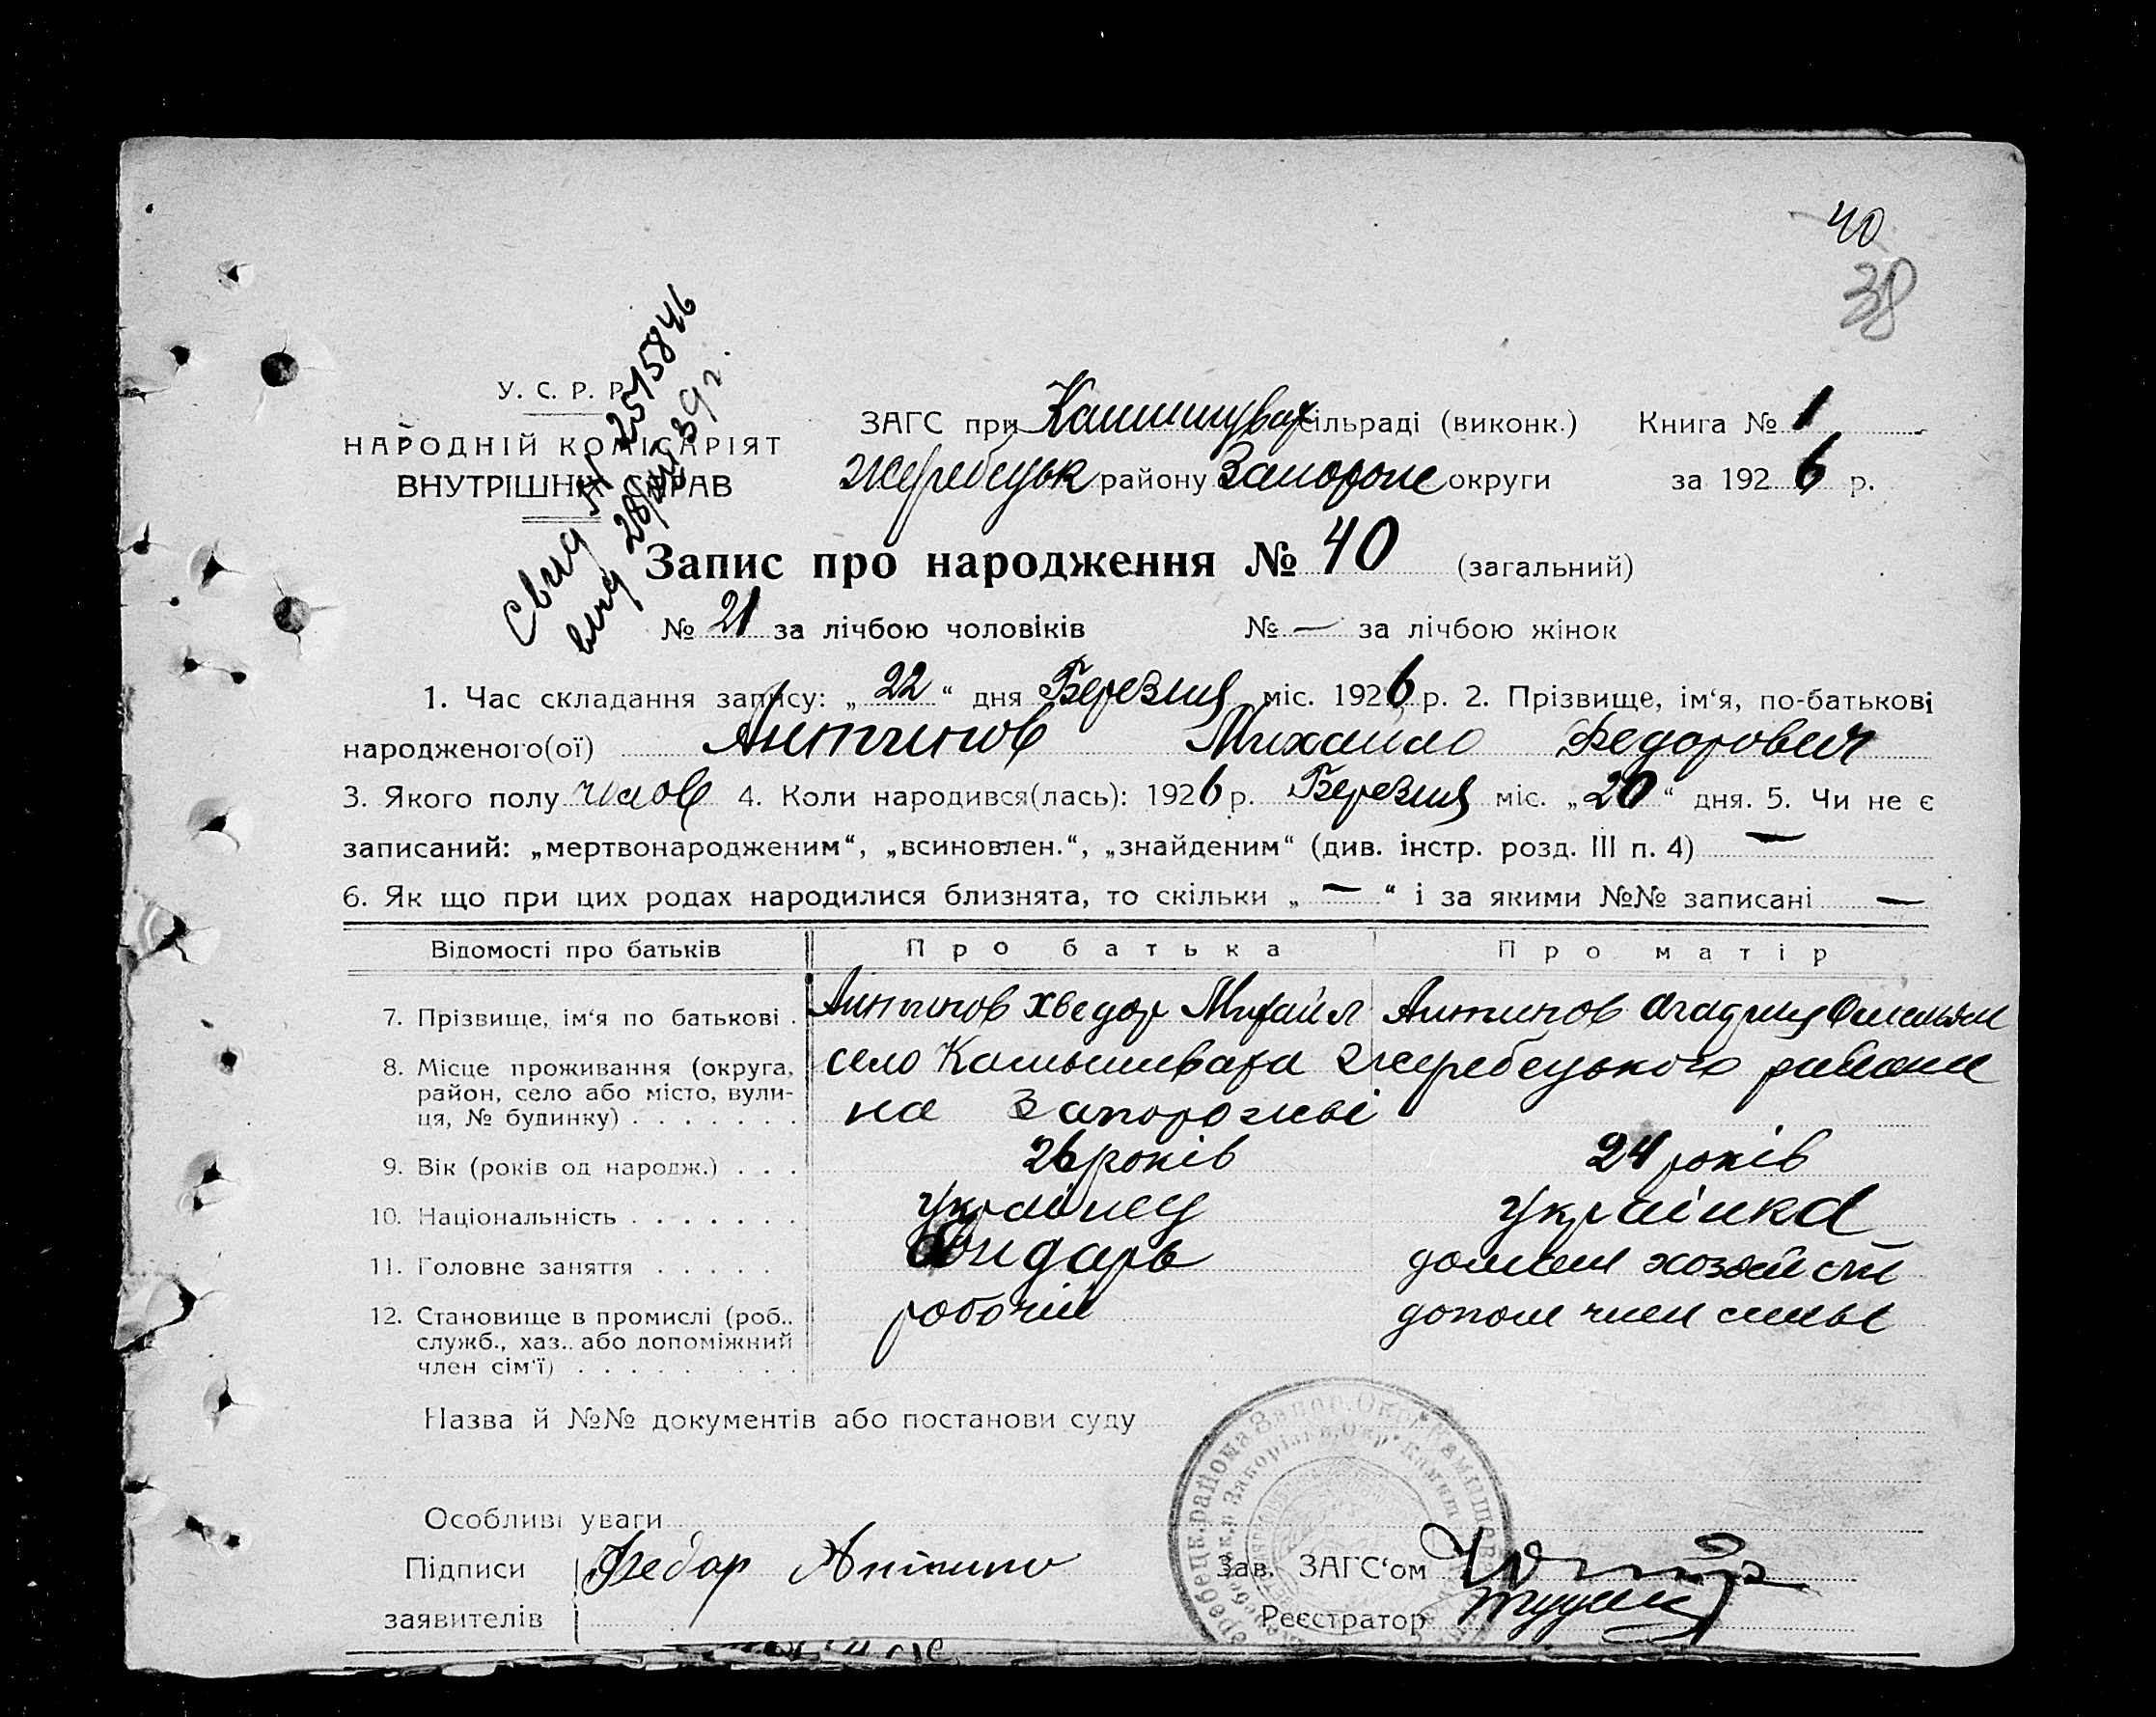 40
38
У. С. Р. Р.
НАРОДНІЙ КОМІСАРІЯТ
ВНУТРІШНІХ СПРАВ
Свид № 2515846
выд 39 г.
ЗАГС при Камишувах сільраді (виконк.) Книга № 1
Жеребецьк району Запорож округи за 1926 р.
Запис про народження № 40 (загальний)
№ 21 за лічбою чоловіків № — за лічбою жінок
1. Час складання запису: „ 22 “ дня Березня міс. 1926 р. 2. Прізвище, ім‘я, по-батькові
народженого(ої) Антипов Михайло Федорович
3. Якого полу чолов 4. Коли народився(лась): 1926 р. Березня міс. „ 20 “ дня. 5. Чи не є
записаний: „мертвонародженим“, „всиновлен.“, „знайденим“ (див. інстр. розд. III п. 4) —
6. Як що при цих родах народилися близнята, то скільки „ — “ і за якими №№ записані —
Відомості про батьків Про батька Про матір
7. Прізвище, ім‘я по батькові . Антипов Хведор Михайл Антипов
8. Місце проживання (округа, район, село або місто, вулиця, № будинку) . . . . . . .
село Камышивага Жеребецького района
на Запорожві
9. Вік (років од народж.) . . . 26 років 24 років
10. Національність . . . . . . . українец українка
11. Головне заняття . . . . . Бондарь домашн хозяйств
12. Становище в промислі (роб.. робочий допом член симьі
служб., хаз.. або допоміжний
член сім‘ї) . . . . . . . .
Назва й №№ документів або постанови суду
Особливі уваги
Підписи Федор Антипо Зав. ЗАГС‘ом
заявителів Реєстратор